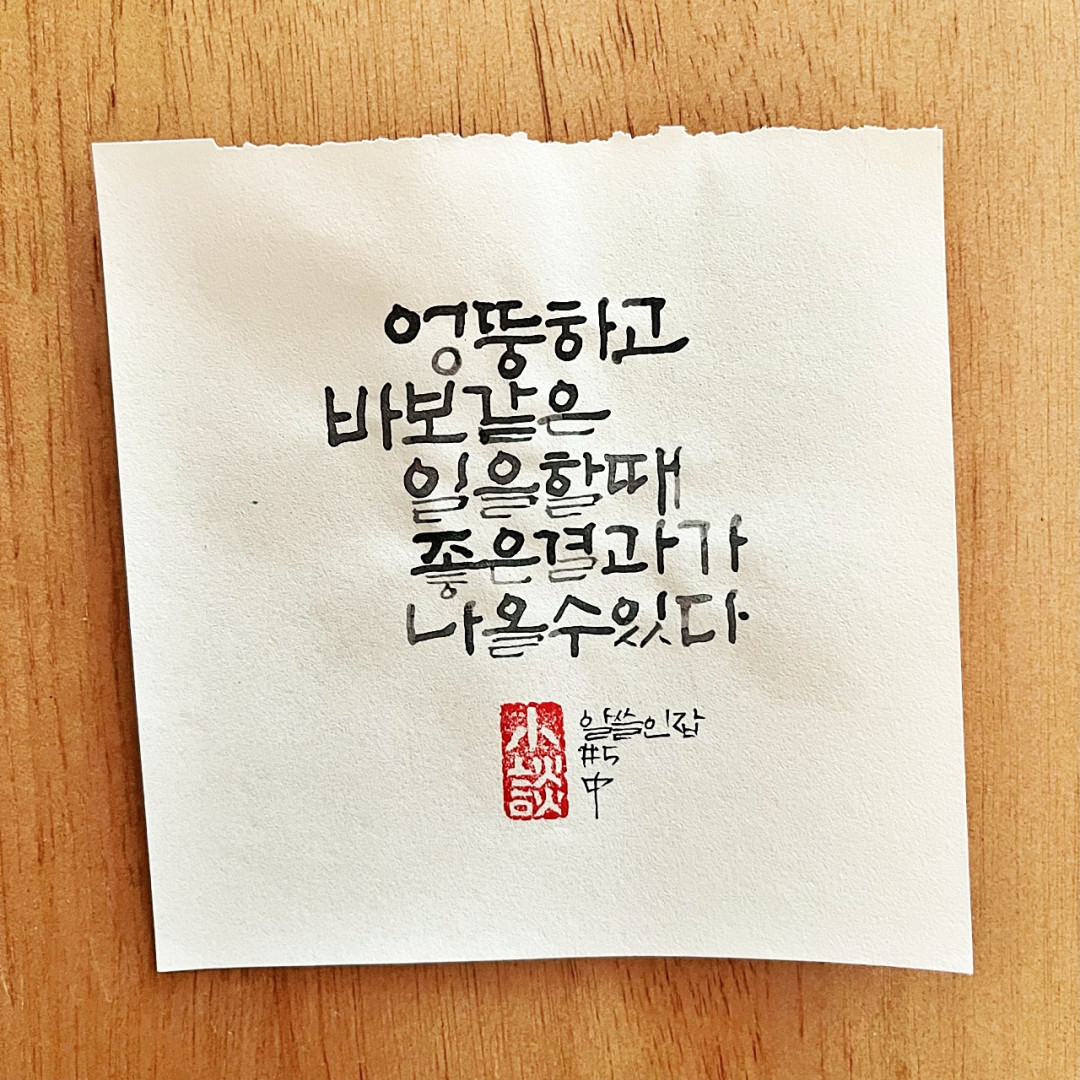 엉뚱하고
바보같은
일을할때
좋은결과가
나올수있다
小談
알쓸인잡
#5
中